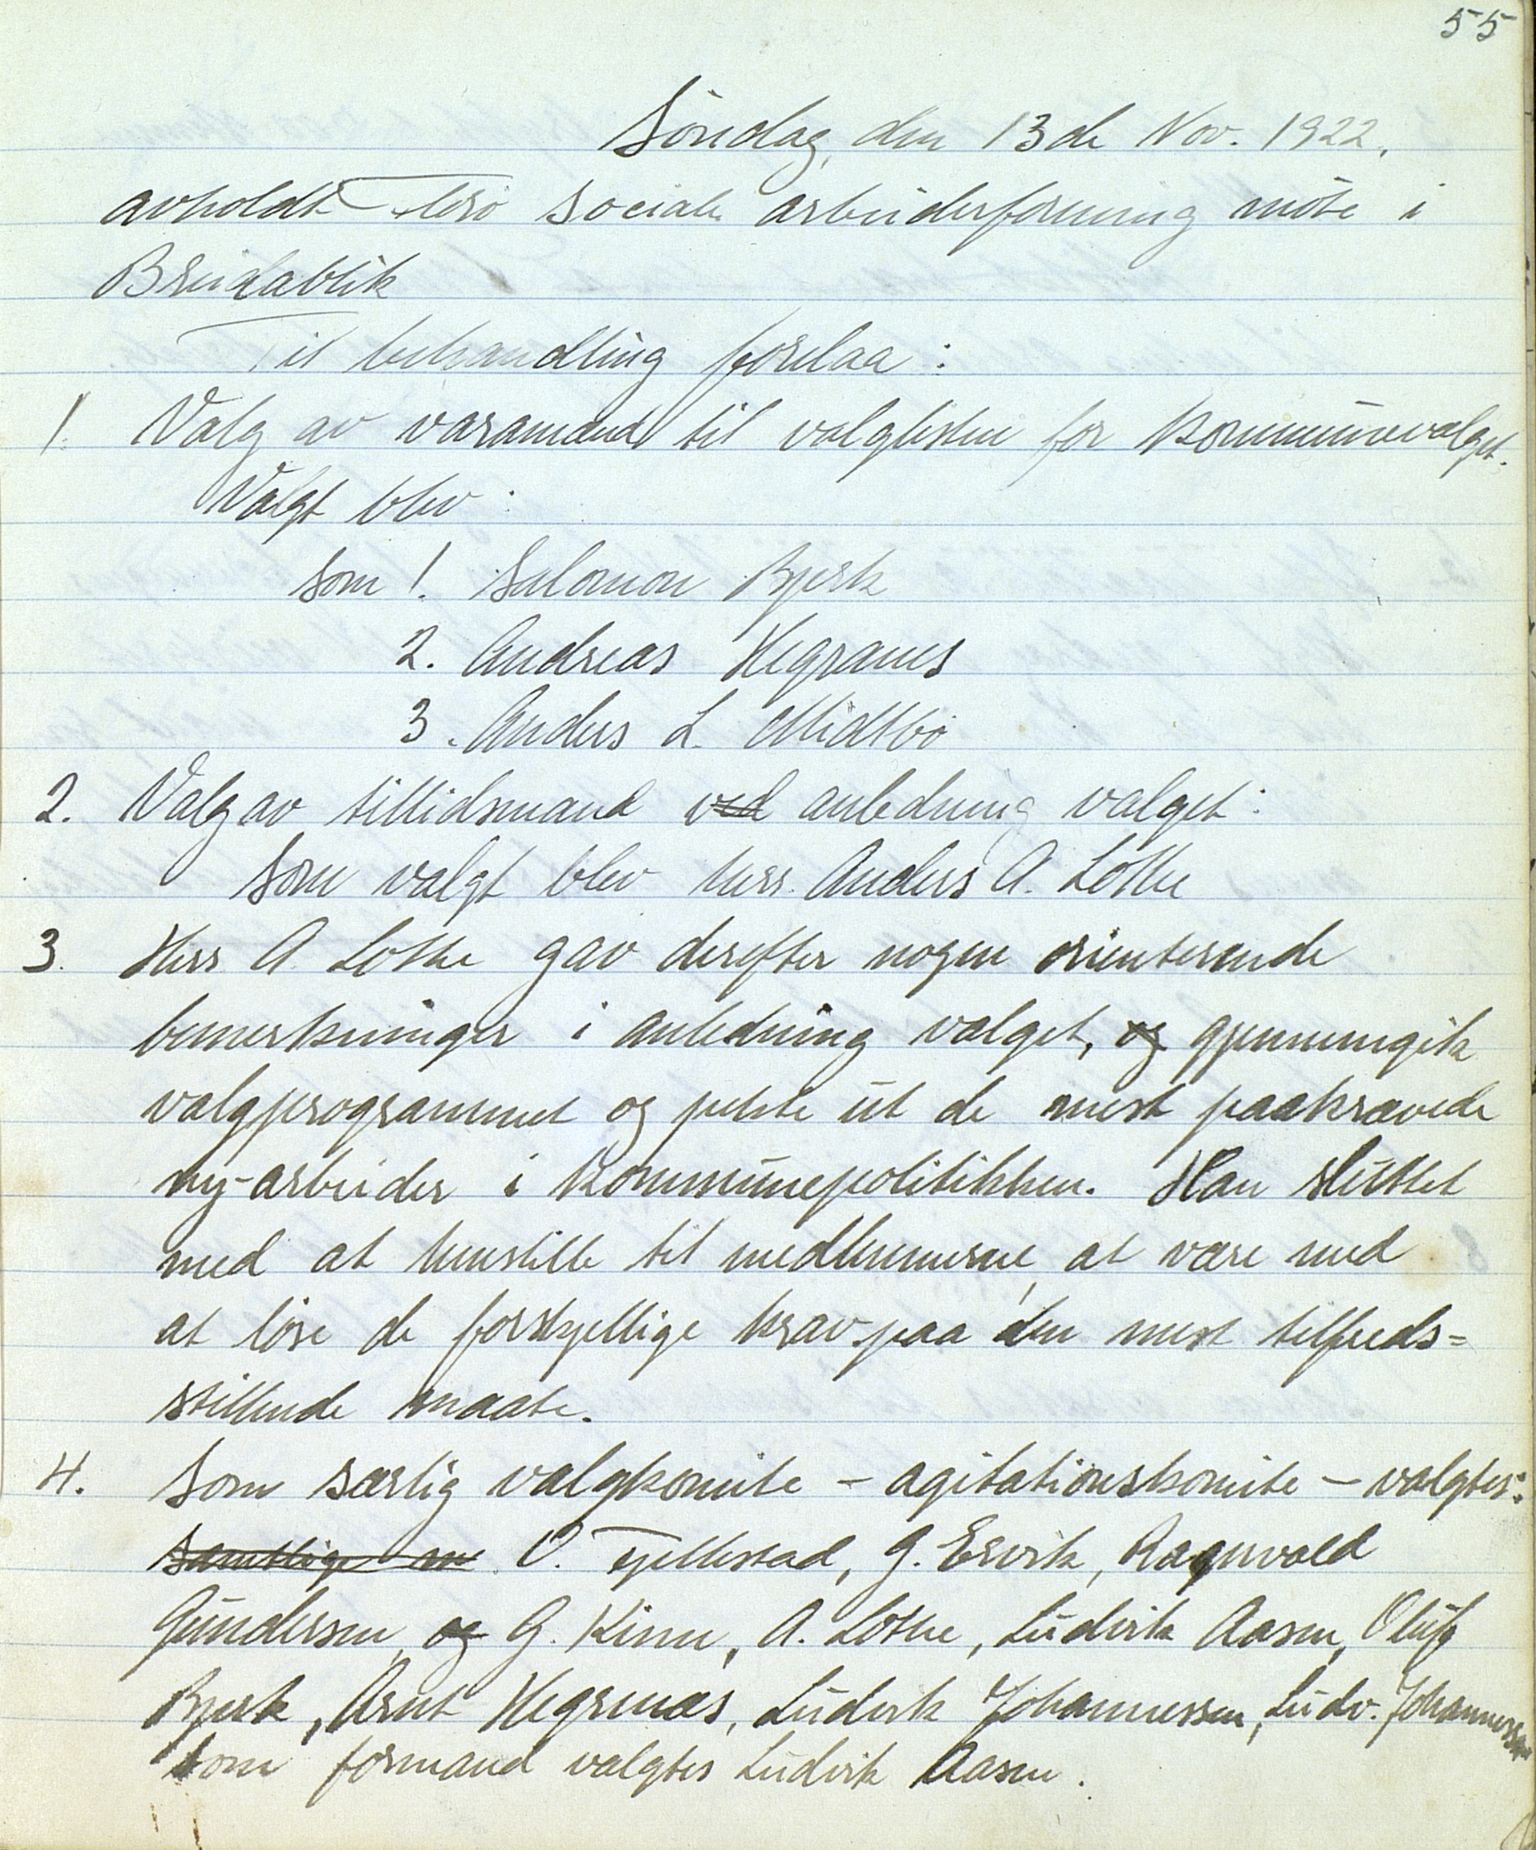 55
Søndag, den 13de Nov. 1922.
avholdt Florø sociale arbeiderforening møte i
Breidablik
Til behandling forelaa :
1. Valg av varamænd til valglisten for kommunevalget.
Valgt blev :
som 1. Salomon Bjerk
2. Andreas Hegranes
3. Anders L. Midtbø
2. Valg av tillidsmand ved anledning valget :
Som valgt blev herr. Anders A. Lothe
3. Herr A Lothe gav derefter nogen orienterende
bemerkninger i anledning valget, og gjennemgik
valgprogrammet og pekte ut de mest paakrævede
ny-arbeider i kommunepolitikken. Han sluttet
med at henstille til medlemmerne, at være med
at løse de forskjellige krav paa den mest tilfreds=
stillende maate.
4. Som særlig valgkomite – agitationskomite – valgtes:
samtlige O. Fjellestad, G. Ervik, Ragnvald
Gundersen, og G. Kinn, A. Lothe, Ludvik Aasen, Oluf
Bjerk, Arnt Hegrenæs, Ludvik Johannessen, Ludv. Johannessen
som formand valgtes Ludvik Aasen.